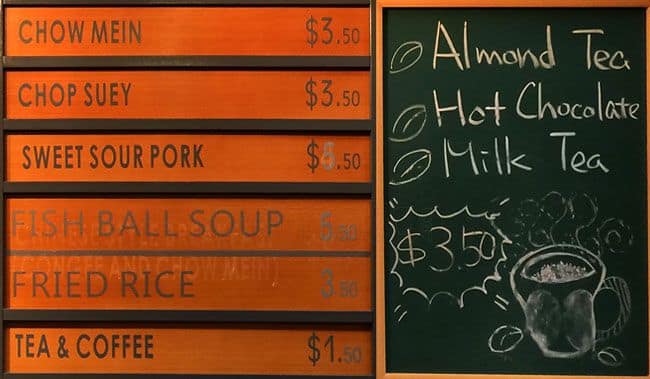 CHOW MEIN $3.50
CHOP SUEY $3.50
SWEET SOUR PORK .50
FISH BALL SOUP
(CONGEE AND CHOW MEIN)
FRIED RICE 3.50
TEA & COFFEE $1.50
Almond Tea
Hot Chocolate
Milk Tea
$3.50